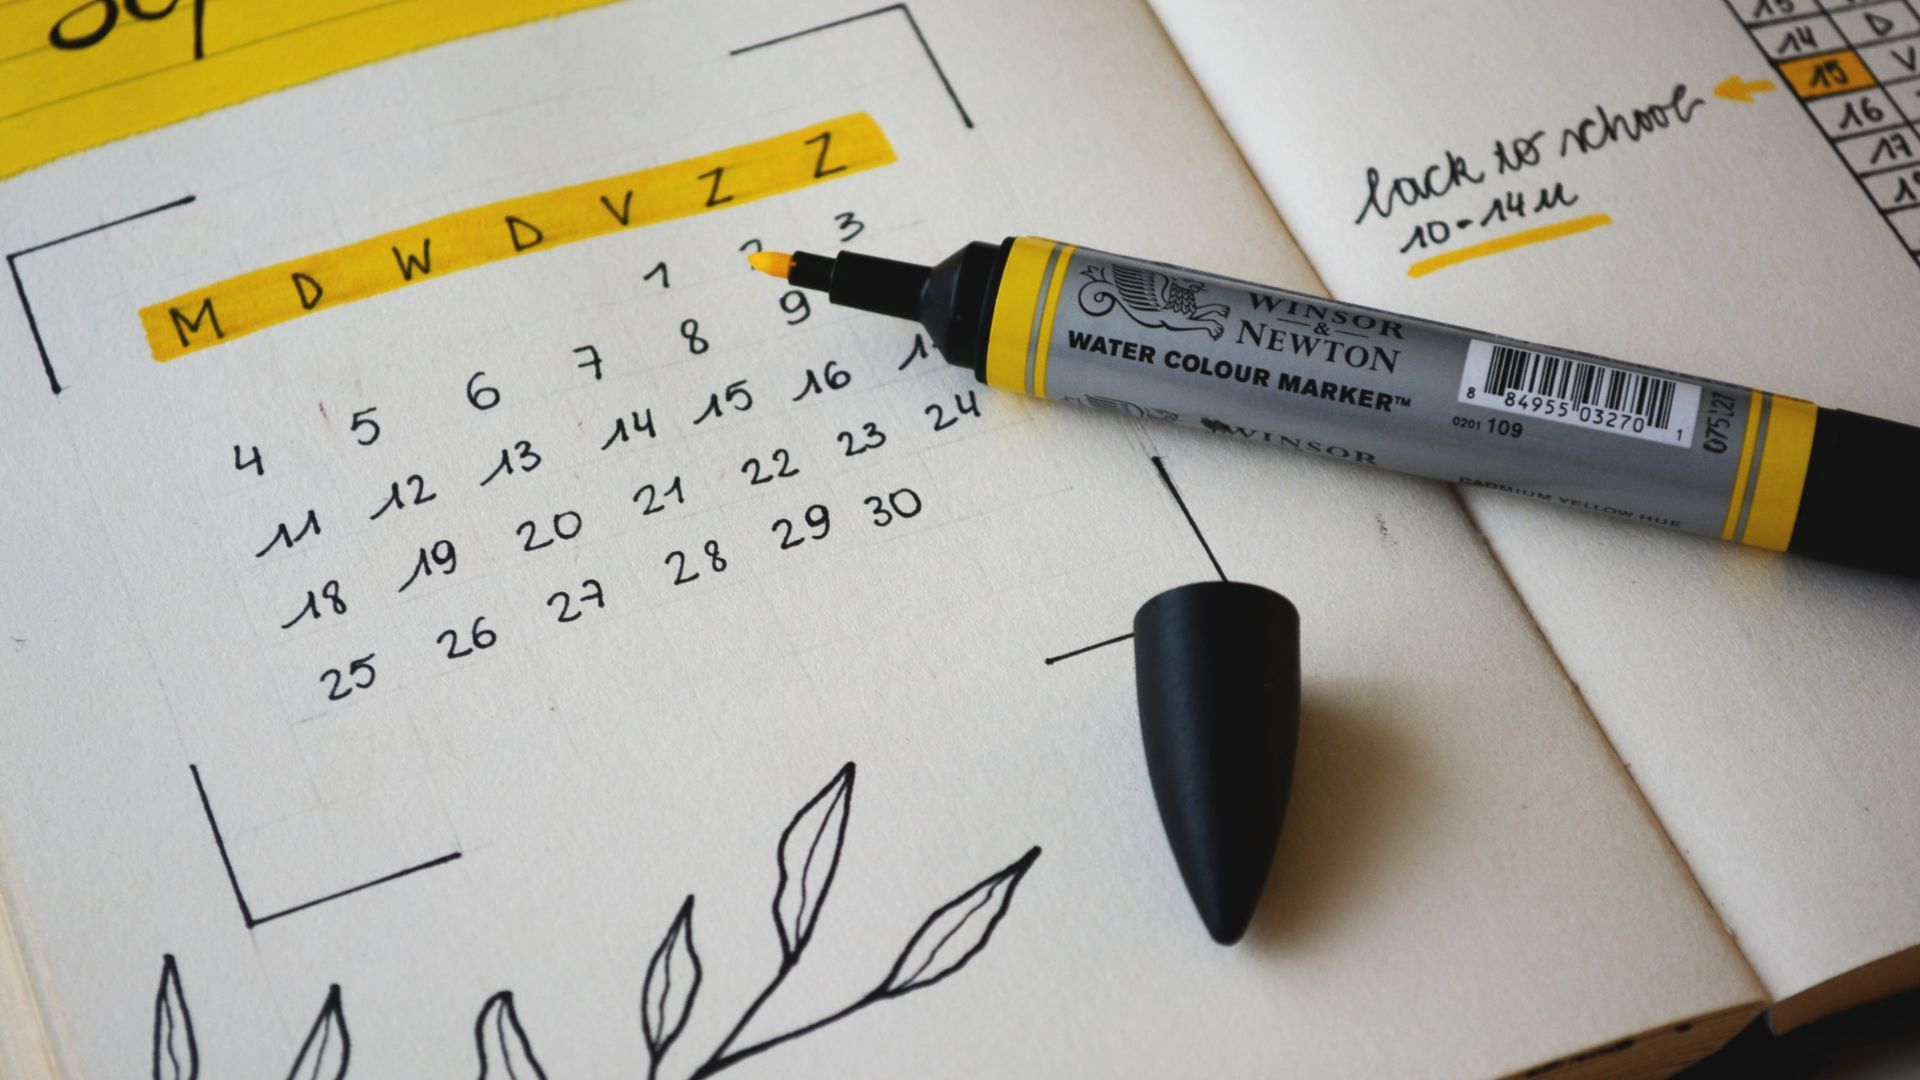 M D W D V Z Z
1 2 3
4 5 6 7 8 9
11 12 13 14 15 16
18 19 20 21 22 23 24
25 26 27 28 29 30
back to school
10-14u
13
14 D
15 V
16
17
WINSOR
&
NEWTON
WATER COLOUR MARKER™
8 84955 03270 1
0201 109
075127
WINSOR
CADMIUM YELLOW HUE